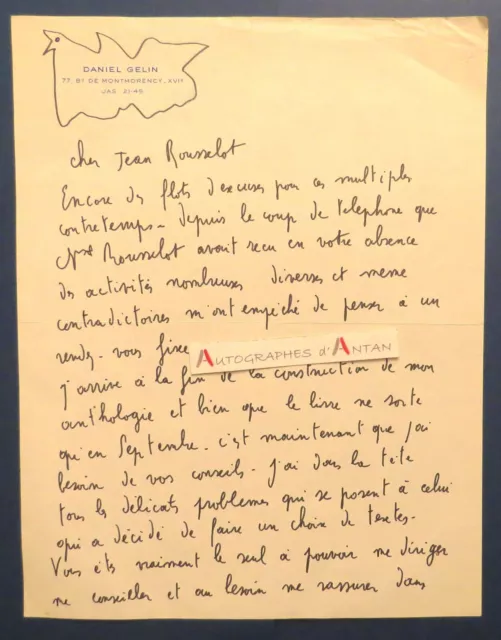 DANIEL GELIN
77, Bd DE MONTMORENCY, XVIe
JAS 21-45
cher Jean Rousselot
Encore des flots d'excuses pour ces multiples
contretemps - depuis le coup de telephone que
Mme Rousselot avait reçu en votre absence
des activités nombreuses diverses et meme
contradictoires m'ont empêché de penser à un
rendez-vous fixe
AUTOGRAPHES d'ANTAN
J'arrive à la fin de la construction de mon
anthologie et bien que le livre ne sorte
qu'en Septembre. c'est maintenant que j'ai
besoin de vos conseils - j'ai dans la tête
tous les délicats problèmes qui se posent à celui
qui a décidé de faire un choix de textes.
Vous êtes vraiment le seul à pouvoir me diriger
me conseiller et au besoin me rassurer dans